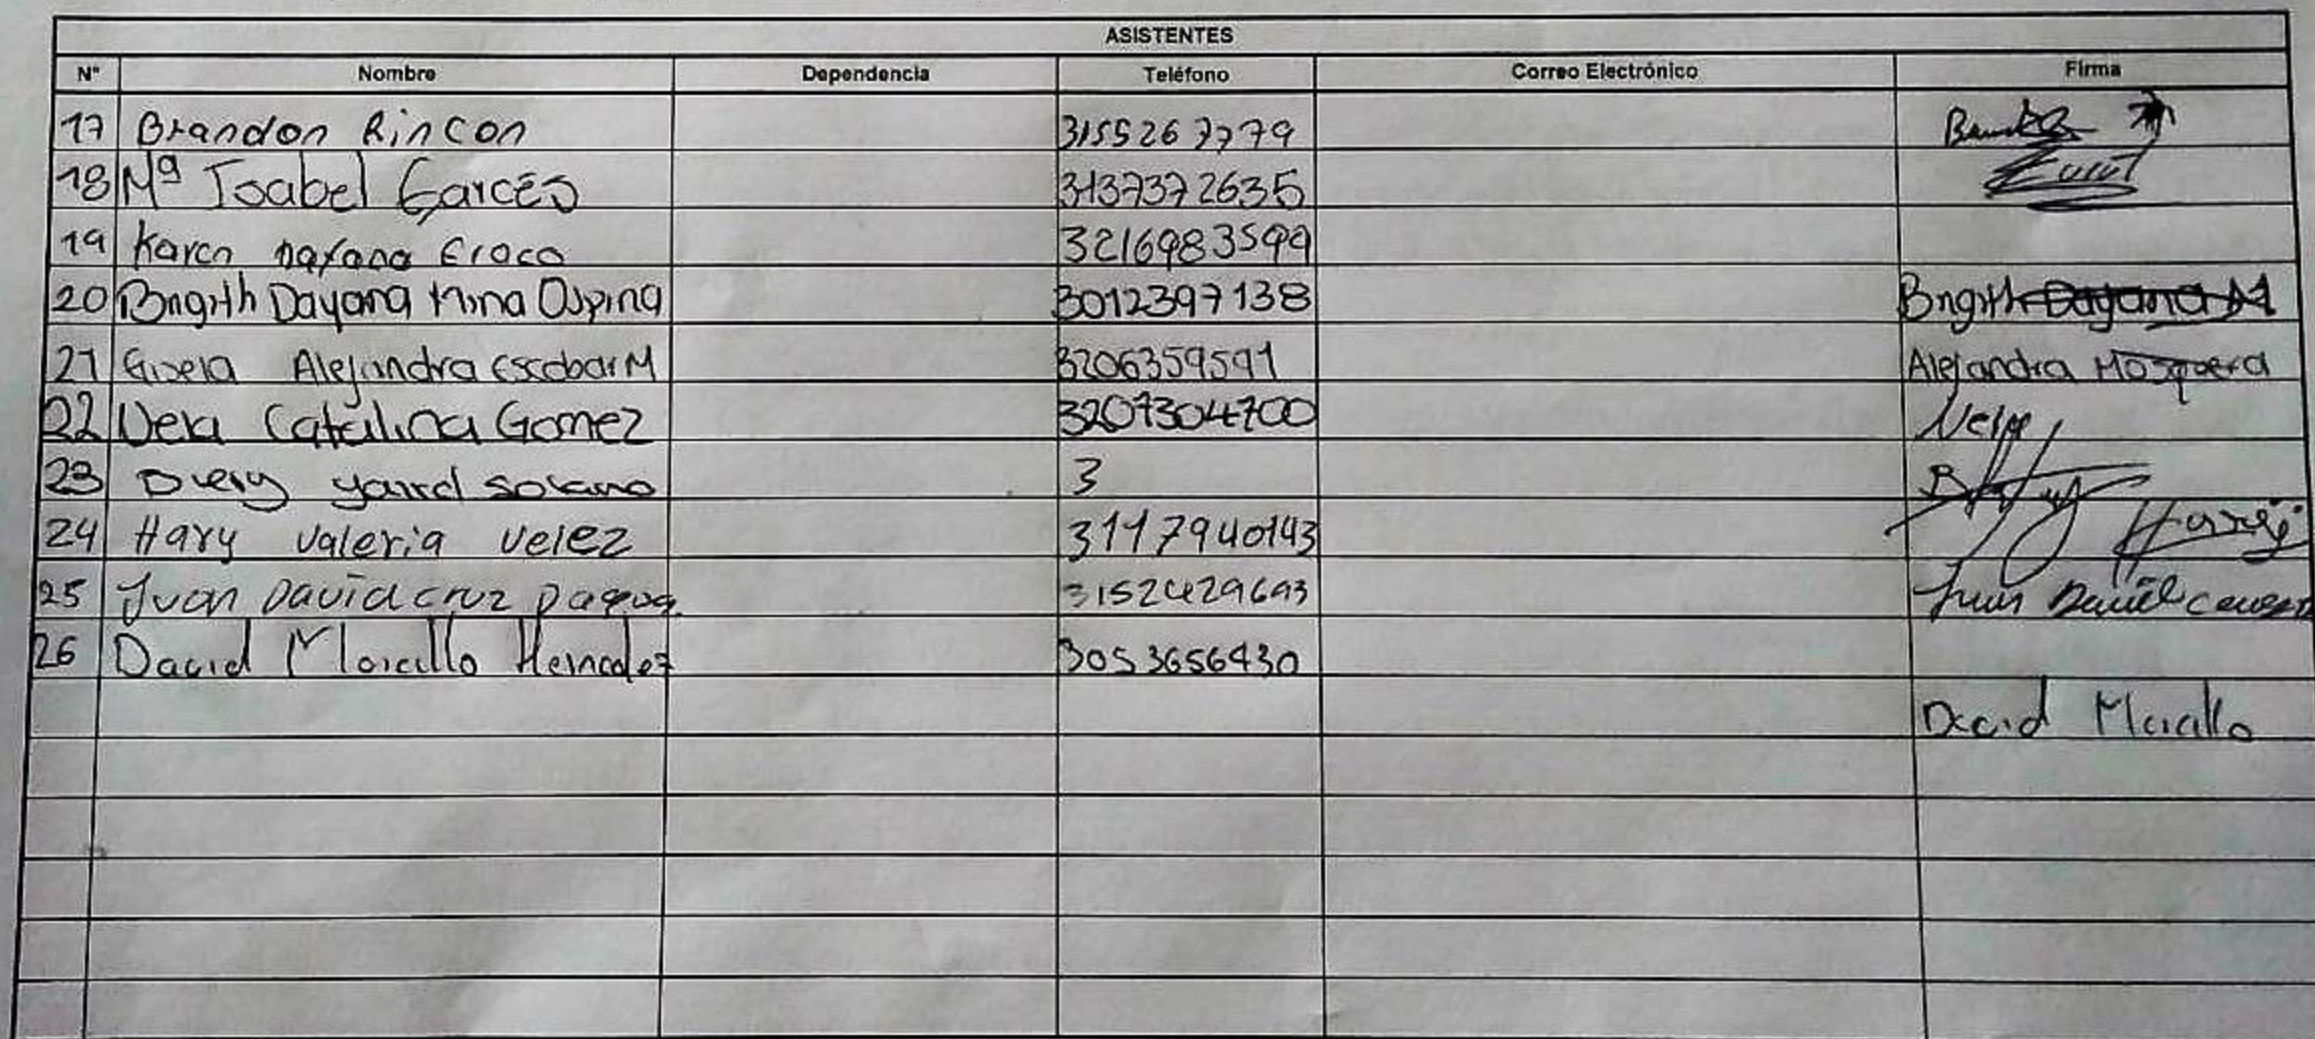 ASISTENTES
N° Nombre Dependencia Teléfono Correo Electrónico Firma
17 Brandon Rincon 3155267779
18 Mª Isabel Garcés 3137372635
19 Karen Dayana 3216983599
20 Brigith Dayana Mina Ospina 3012397138 Brigith Dayana M
21 Gisela Alejandra Escobar M 3206359591 Alejandra Mosquera
22 Vera Catalina Gomez 3207304700
23 3
24 Hary Valeria Velez 3117940143
25 Juan David cruz 3152429693
26 David Morcillo 3053656430
David Morcillo